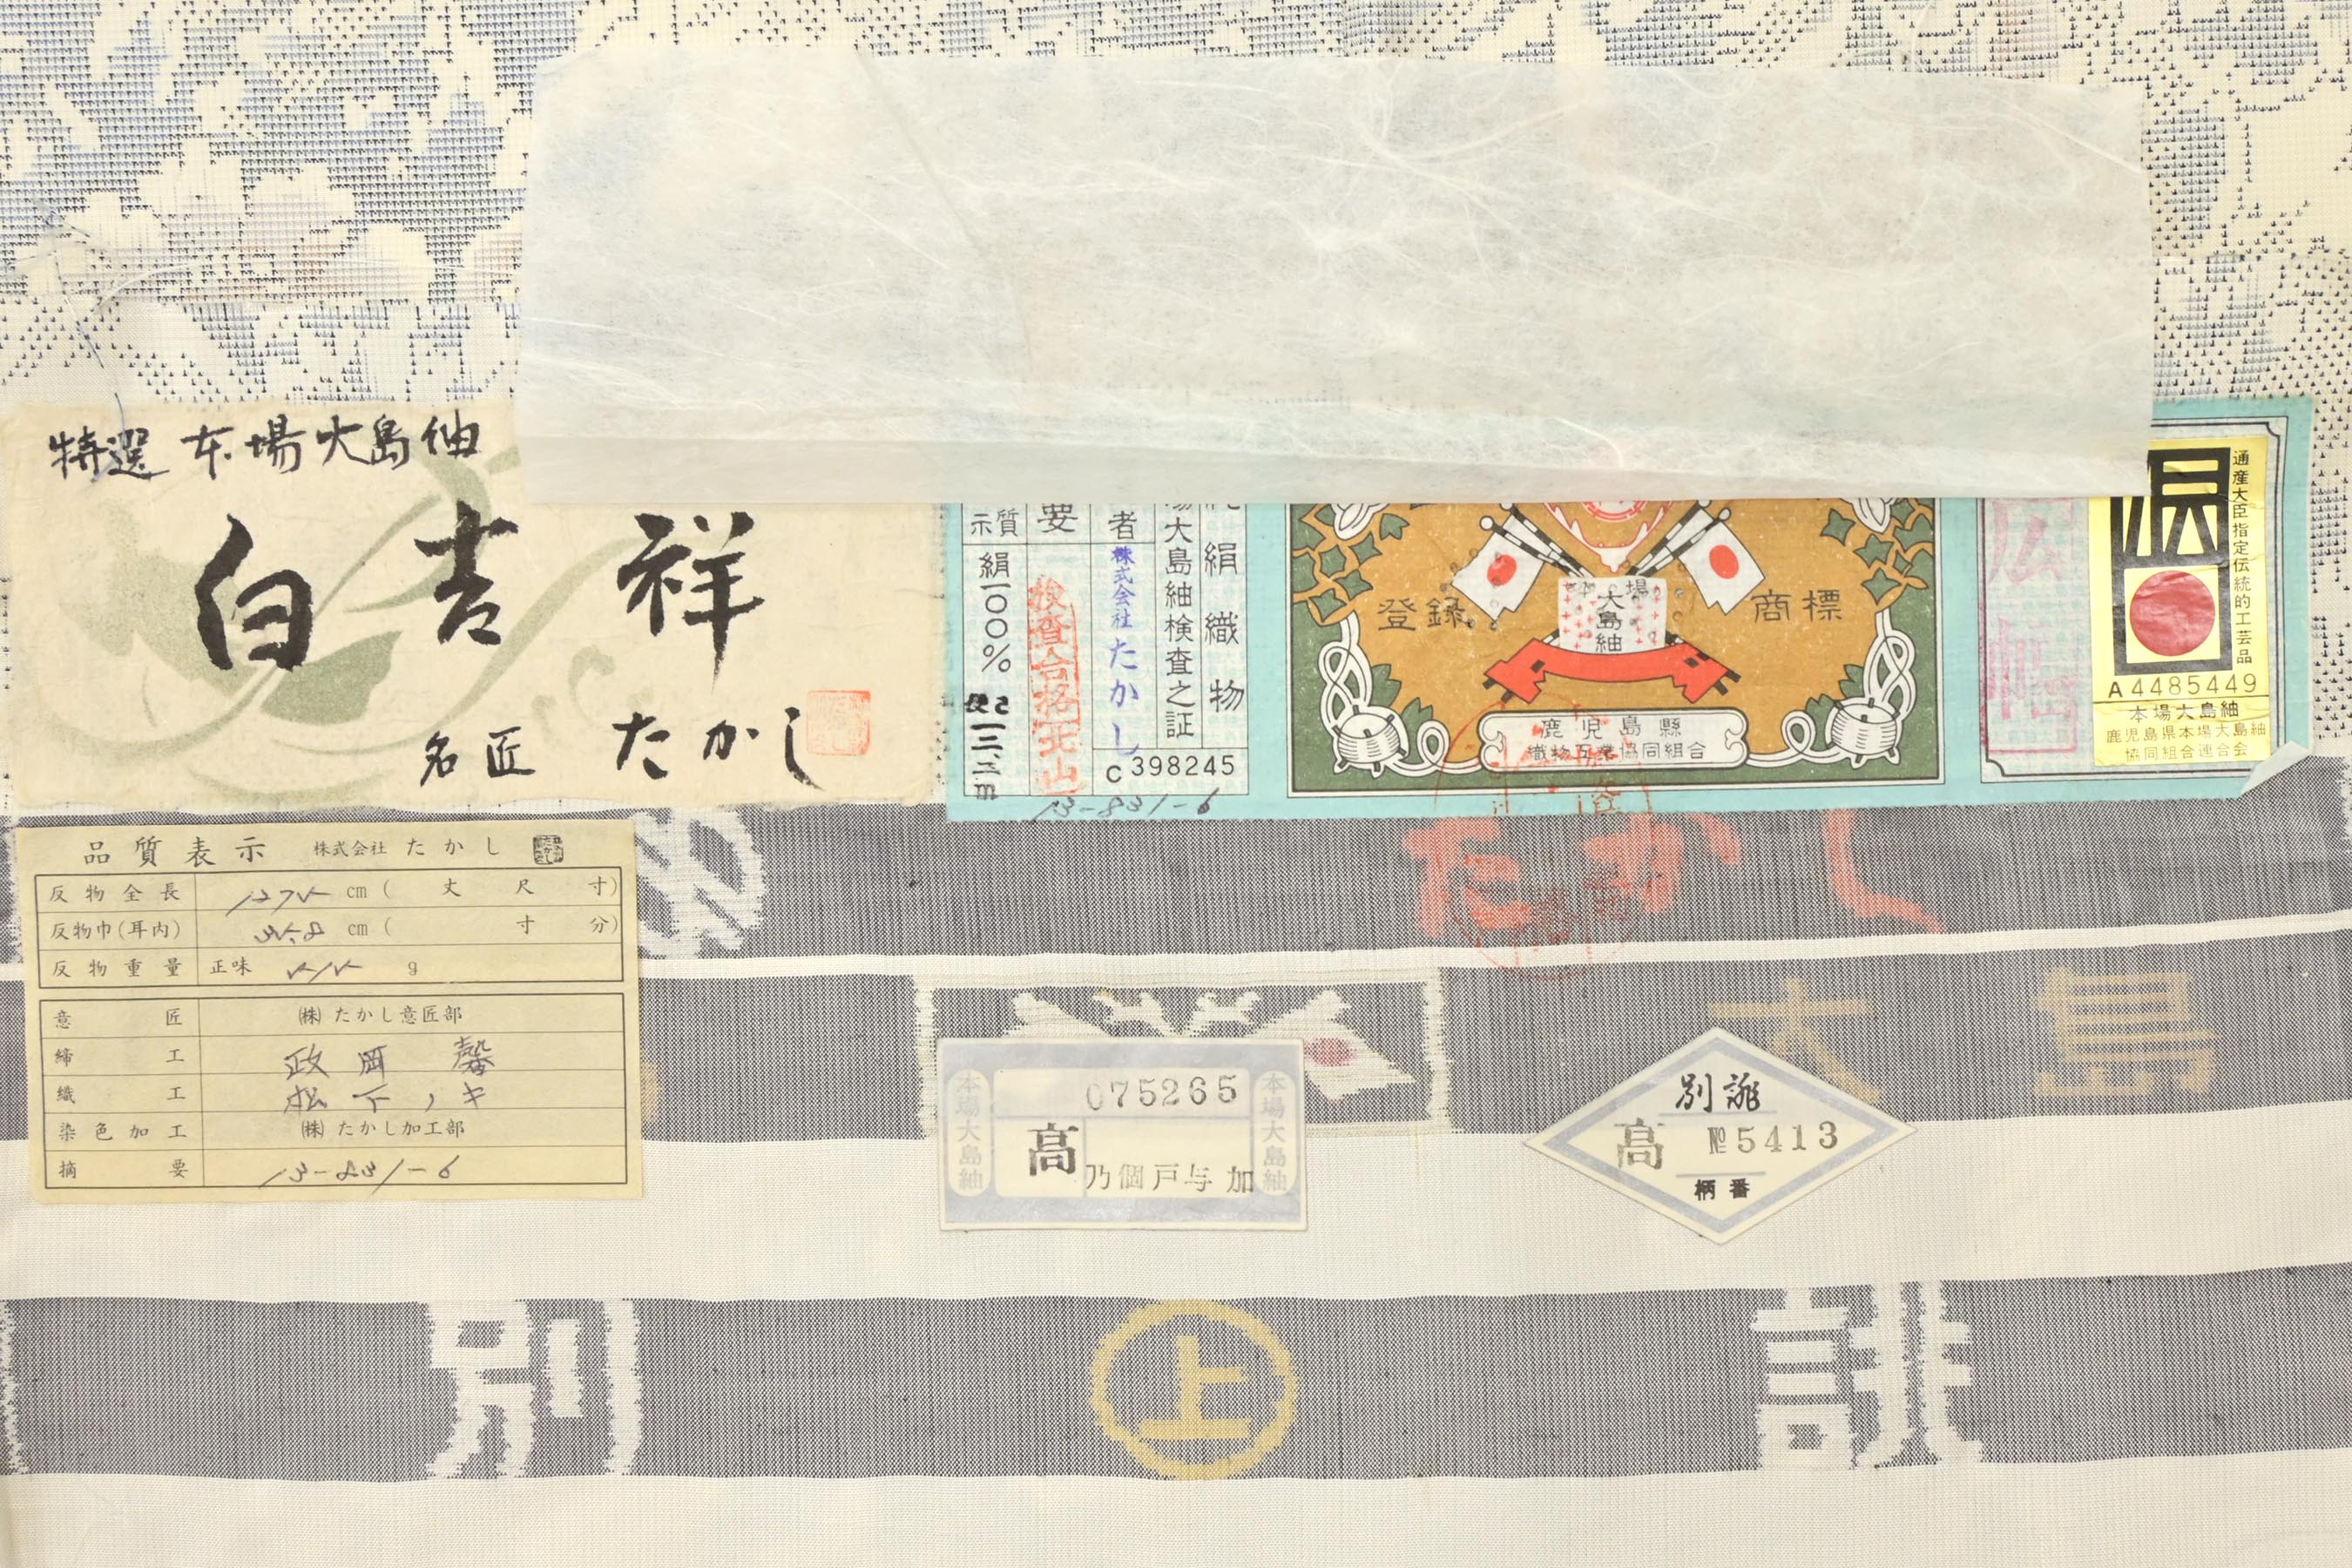 特選 本場大島紬
白吉祥
名匠 たかし
絹織物
場大島紬検査之証
者 株式会社たかし
C 398245
要 検査合格
質示 絹一〇〇%
13-831-6
登録 商標
本場
大島紬
鹿児島縣
織物工業協同組合
通産大臣指定伝統的工芸品
A 4485449
本場大島紬
鹿児島県本場大島紬
協同組合連合会
品質表示 株式会社 たかし
反物全長 1275 cm ( 丈 尺 寸)
反物巾(耳内) 35.8 cm ( 寸 分)
反物重量 正味 515 g
意匠 ㈱たかし意匠部
締工 政岡 馨
織工 松下ノキ
染色加工 ㈱たかし加工部
摘要 13-831-6
たかし
大島
本場大島紬
075265
高
乃個戸与加
本場大島紬
別誂
高 №5413
柄番
別 上 誂